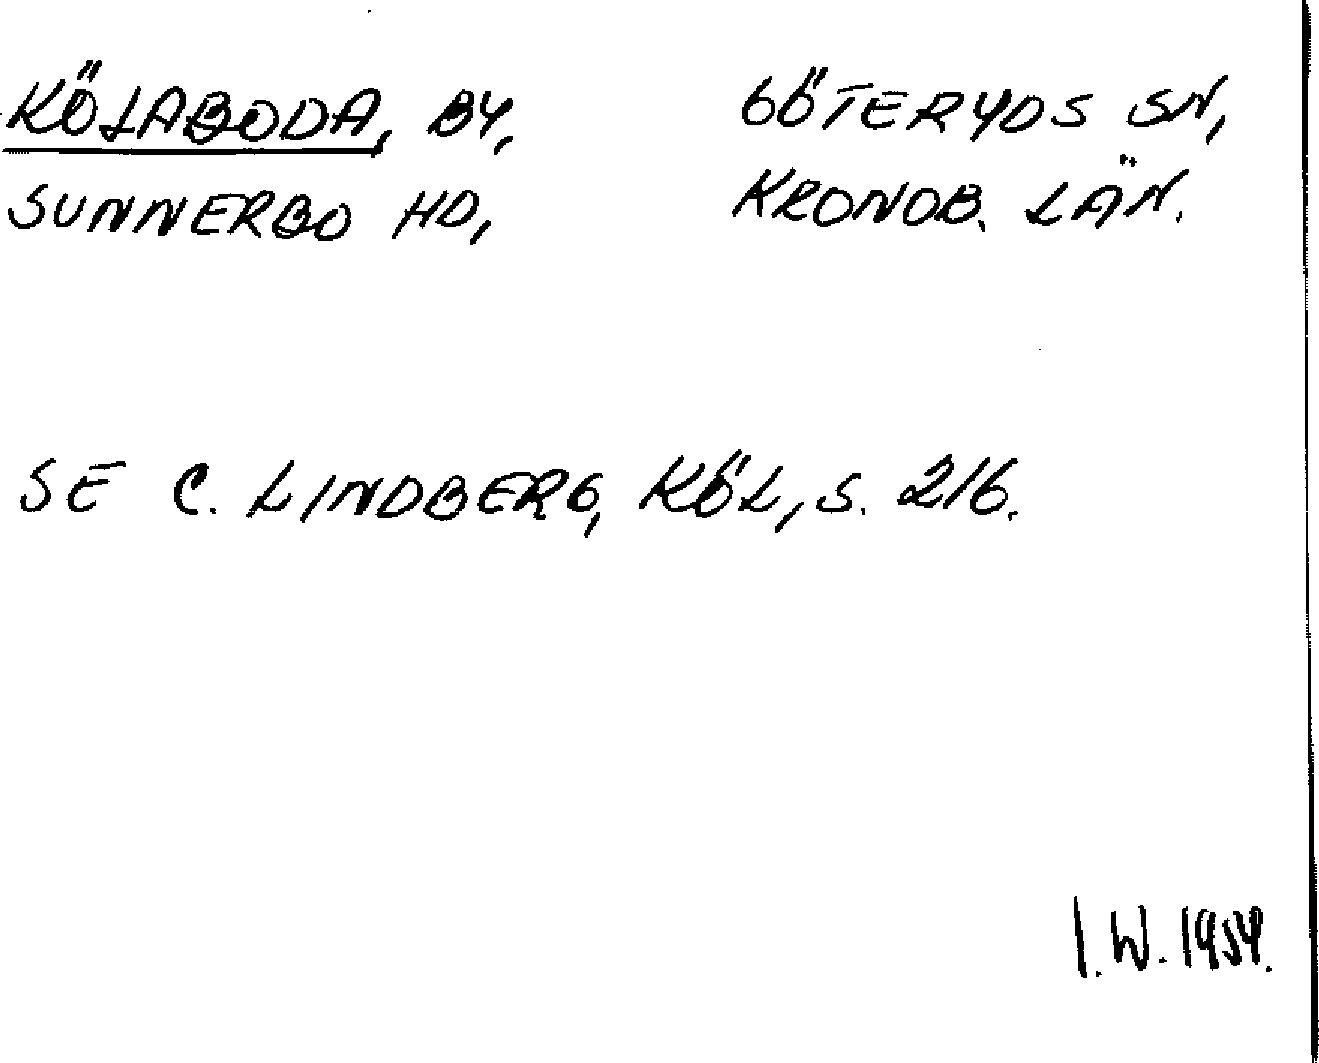 KÖLABODA, BY, GÖTERYDS SN,
SUNNERBO HD, KRONOB. LÄN.
SE C. LINDBERG, KÖL, S. 216.
I. W. 1954.